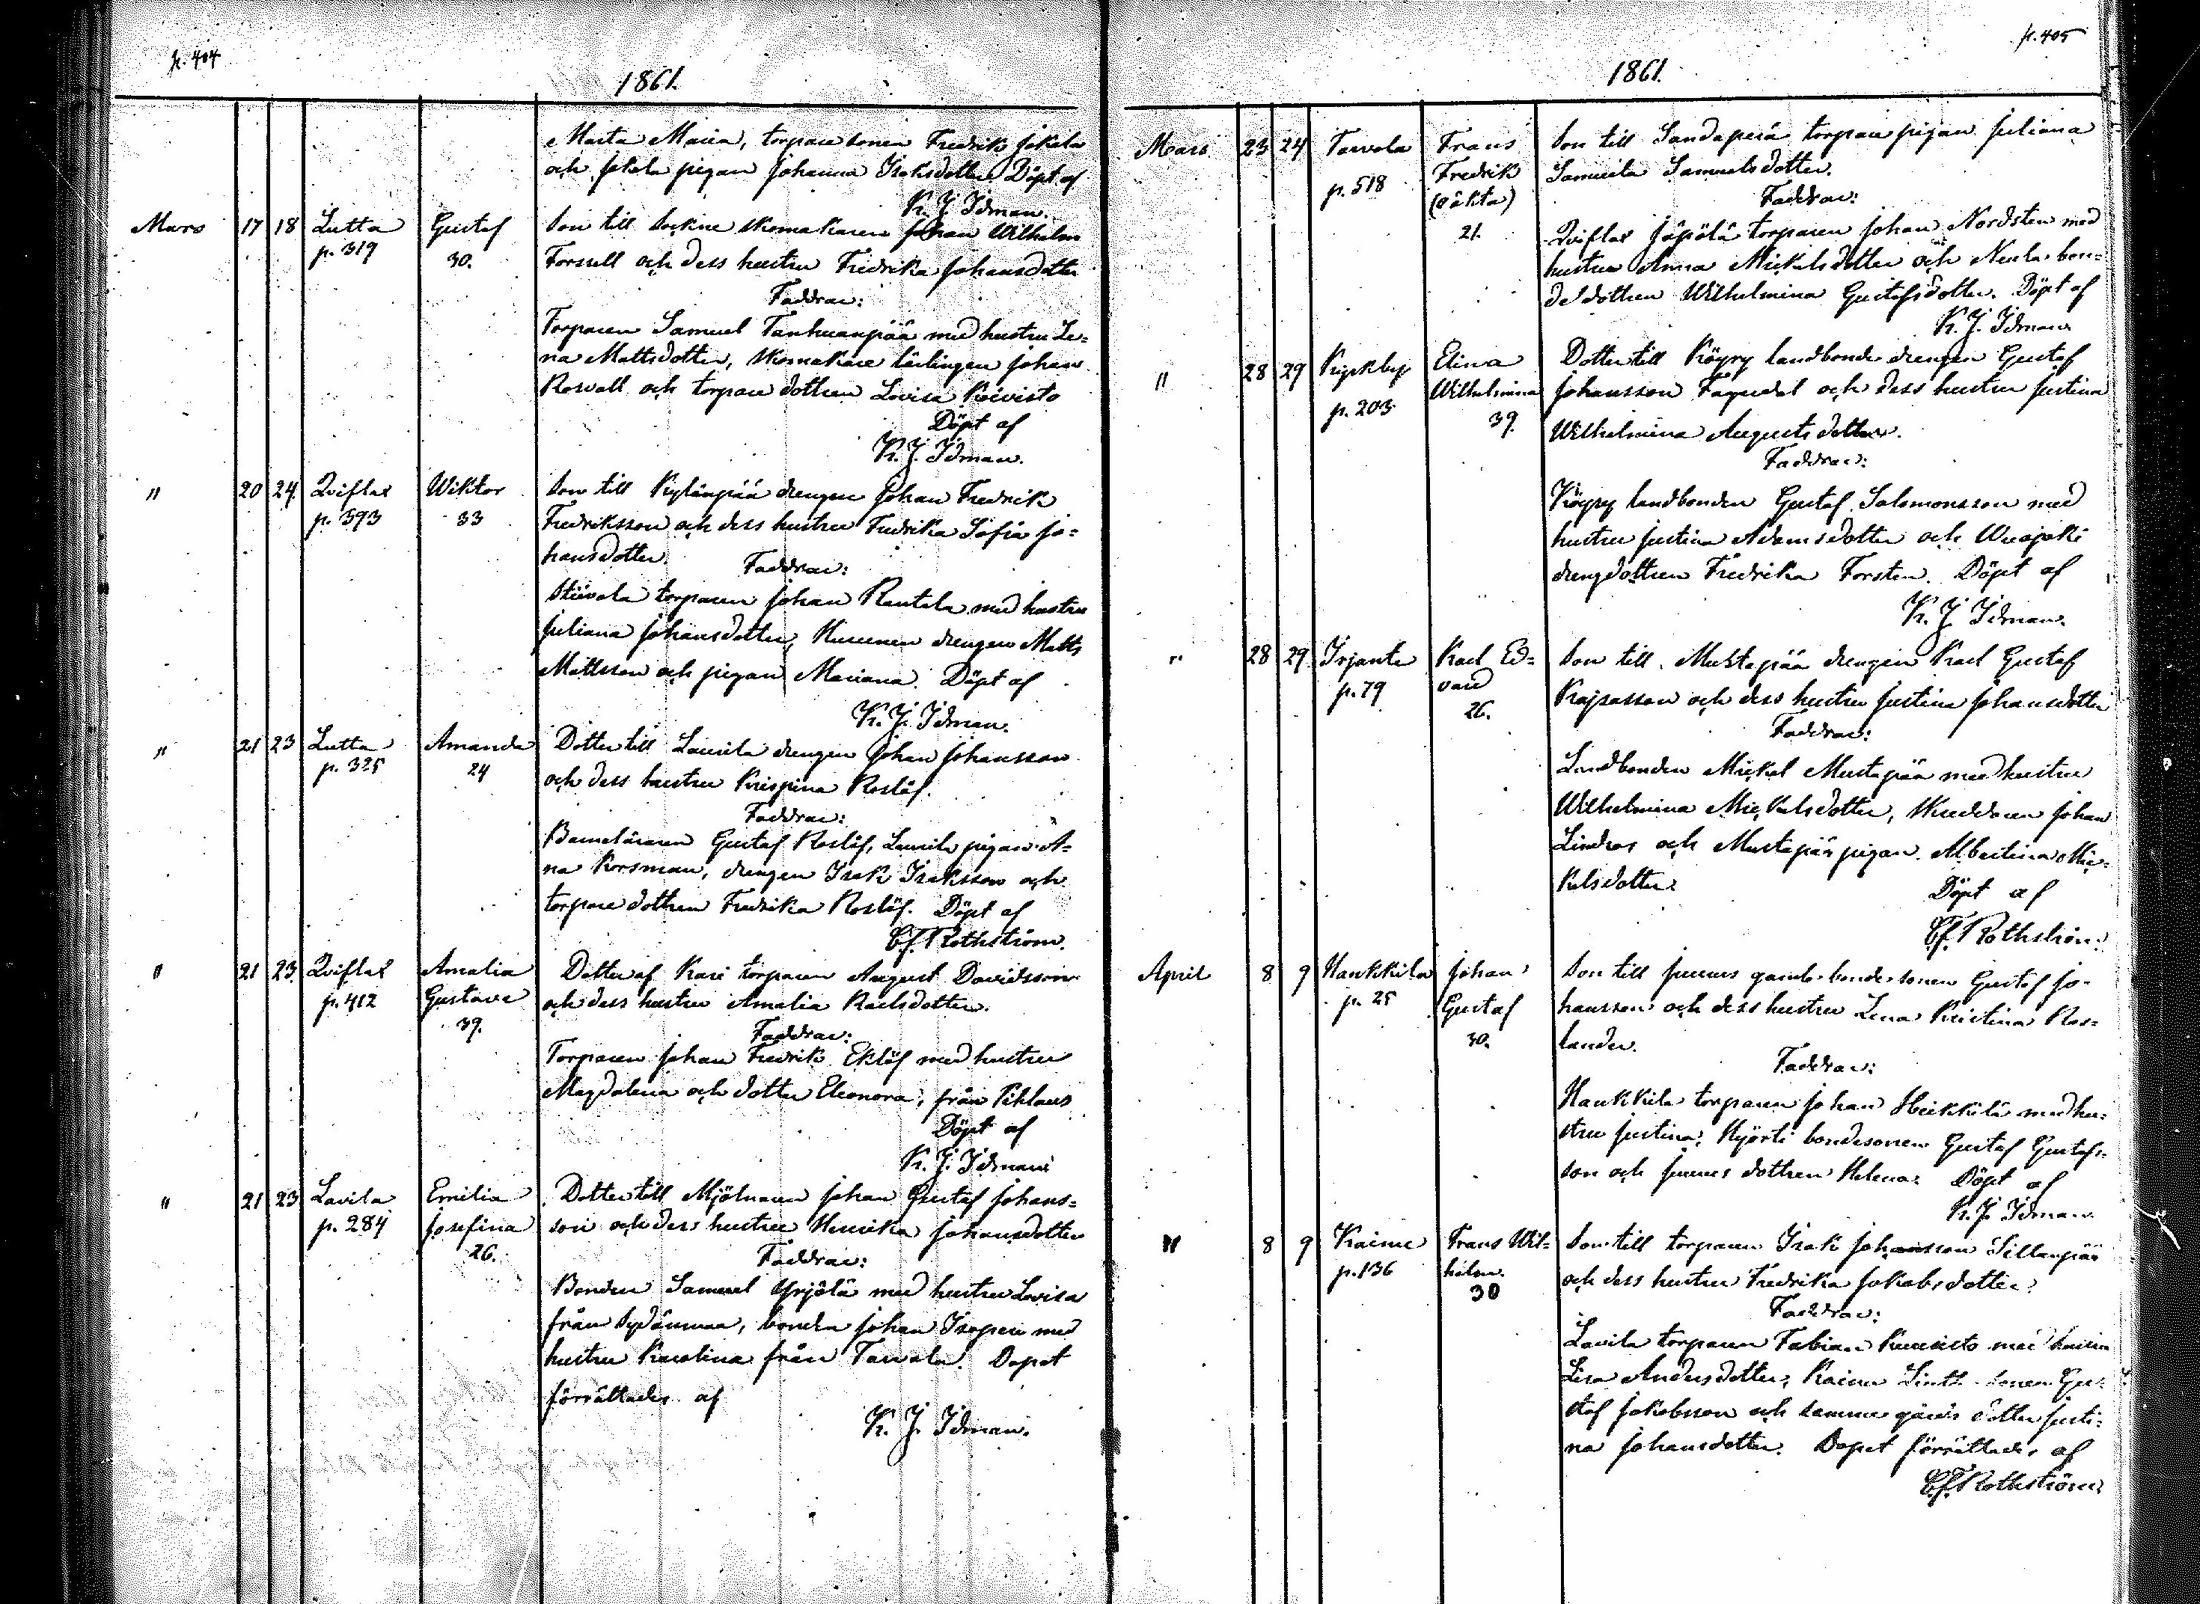 p. 404
1861.
Maria Maria, torparesonen Fredrik Jokela
och Jokela pigan Johanna Isaksdotter Döpt af
K. J. Idman.
Mars 17 18 Lutta Gustaf Son till sockne skomakaren Johan Wilhelm
p. 319 30. Forssell och dess hustru Fredrika Johansdotter
Faddrar:
Torparen Samuel Tanhuanpää med hustru Le=
na Mattsdotter, skomakare lärlingen Johan
Roswall och torpare dottren Lovisa Koivisto
Döpt af
K. J. Idman.
" 20 24 Qviflax Wiktor Son till Kylänpää drengen Johan Fredrik
p. 393 33 Fredriksson och dess hustru Fredrika Sofia Jo=
hansdotter.
Faddrar:
torparen Johan Rantala med hustru
Juliana Johansdotter, drengen Matts
Mattsson och pigan Mariana. Döpt af
K. J. Idman.
" 21 23 Lutta Amanda Dotter till Laurila drengen Johan Johansson
p. 325 24 och dess hustru Krispina Roslöf.
Faddrar:
Barnaläraren Gustaf Roslöf, Laurila pigan A=
na Korsman, drengen Isak Isaksson och
torpare dottren Fredrika Roslöf. Döpt af
C. J. Rothström.
" 21 23 Qviflax Amalia Dotter af Kari torparen August Davidsson
p. 412 Gustava och dess hustru Amalia Karlsdotter.
39.
Faddrar:
Torparen Johan Fredrik Eklöf med hustru
Magdalena och dotter Eleonora, från Piklaus
Döpt af
K. J. Idman
" 21 23 Lavila Emilia Dotter till Mjölnaren Johan Gustaf Johans=
p. 284 Josefina son och dess hustru Henrika Johansdotter
26.
Faddrar:
Bonden Samuel Yrjölä med hustru Lovisa
från Sydänmaa, bonden Johan Isopere med
hustru Karolina från Tarvala. Dopet
förrättades af
K. J. Idman.
p. 405
1861.
Mars 23 24 Tarvola Frans Son till Sandaperä torpare pigan Juliana
p. 518 Fredrik Samuela Samuelsdotter.
(oäkta)
21.
Faddrar:
Qviflax Jäpölä torparen Johan Nordsten med
hustru Anna Mickelsdotter och bon=
dedottren Wilhelmina Gustafsdotter. Döpt af
K. J. Idman.
" 28 29 Kyrkby Elina Dotter till Köyry landbonde drengen Gustaf
p. 203 Wilhelmina Johansson Fagerdal och dess hustru Justina
39. Wilhelmina Augustsdotter.
Faddrar:
Köyry landbonden Gustaf Salomonsson med
hustru Justina Adamsdotter och
drengdottren Fredrika Forsten. Döpt af
K. J. Idman.
" 28 29 Irjanta Karl Ed= Son till Mustapää drengen Karl Gustaf
p. 79 vard Kajsasson och dess hustru Justina Johansdotter
26.
Faddrar:
Landbonden Mickel Mustapää med hustru
Wilhelmina Mickelsdotter, Skreddaren Johan
Lindros och Mustapää pigan Albertina Mic=
kelsdotter.
Döpt af
C. J. Rothström.
April 8 9 Haukkila Johan Son till Junnus gamla bonde sonen Gustaf Jo=
p. 25 Gustaf hansson och dess hustru Lena Kristina Ros=
30. lander.
Faddrar:
Haukkila torparen Johan Heikkilä med hu=
stru Justina, Hjörti bondesonen Gustaf Gustafs=
son och Junnus dottren Helena. Döpt af
K. J. Idman.
" 8 9 Kaime Frans Wil= Son till torparen Isak Johansson Sillanpää
p. 136 helm. och dess hustru Fredrika Jakobsdotter.
30
Faddrar:
Lavila torparen Fabian Kuusisto med hustru
Lisa Andersdotter, sonen Gu=
staf Jakobsson och samma gårds dotter Justi=
na Johansdotter. Dopet förrättades af
C. J. Rothström.